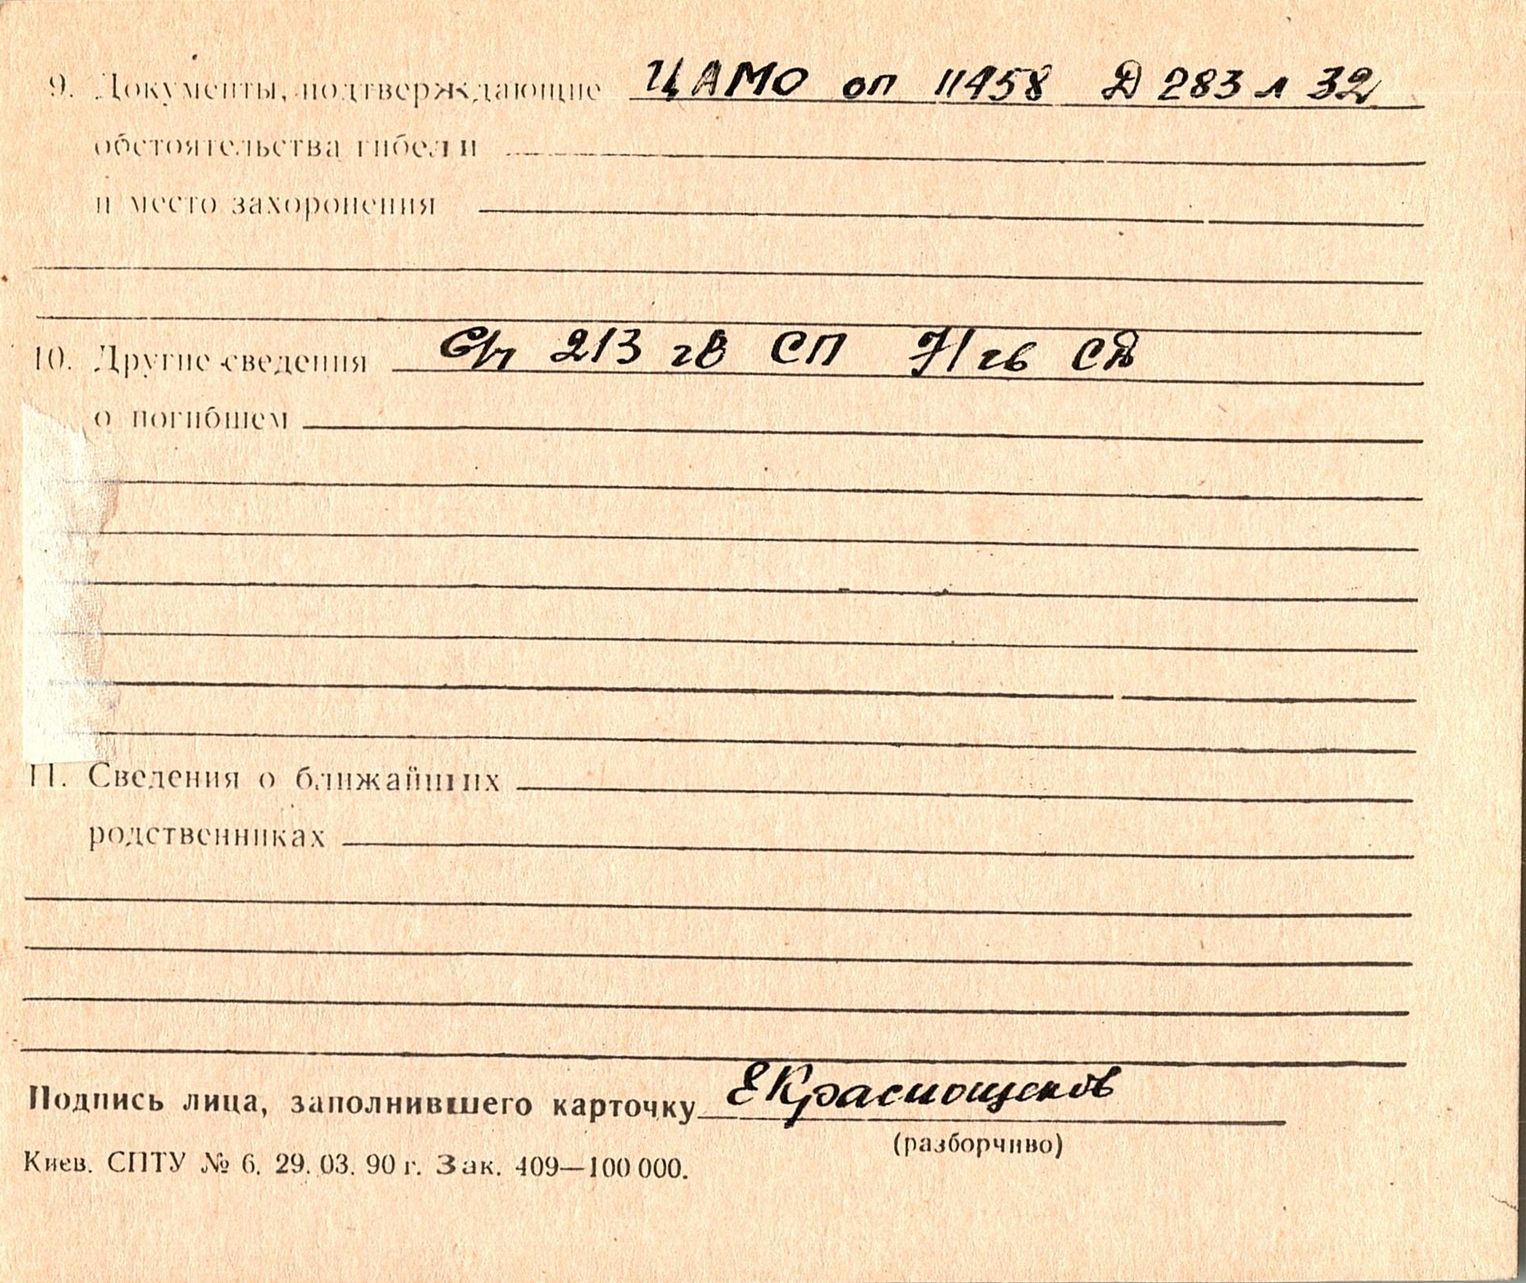 9. Документы, подтверждающие ЦАМО оп 11458 Д 283 л 32
обстоятельства гибели
и место захоронения
10. Другие сведения С/п 213 гв СП 71 гв СД
о погибшем
11. Сведения о ближайших
родственниках
Подпись лица, заполнившего карточку ЕКраснощеков
(разборчиво)
Киев. СПТУ № 6. 29. 03. 90 г. Зак. 409—100 000.